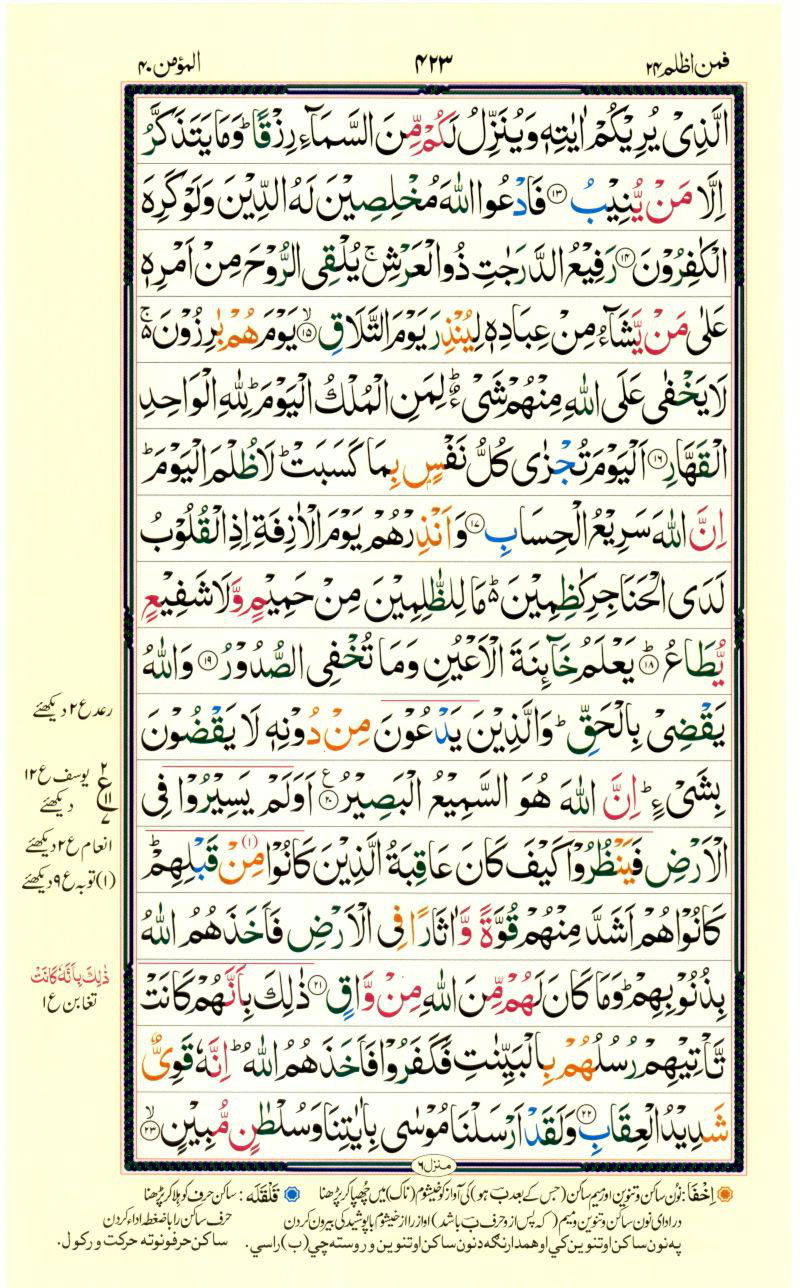 فمن اظلم ٢٤
٤٢٣
المؤمن ٤٠
الَّذِىْ يُرِيْكُمْ اٰيٰتِهٖ وَيُنَزِّلُ لَكُمْ مِّنَ السَّمَآءِ رِزْقًا ؕ وَمَا يَتَذَكَّرُ
اِلَّا مَنْ يُّنِيْبُ ﴿١٣﴾ فَادْعُوا اللّٰهَ مُخْلِصِيْنَ لَهُ الدِّيْنَ وَلَوْ كَرِهَ
الْكٰفِرُوْنَ ﴿١٤﴾ رَفِيْعُ الدَّرَجٰتِ ذُوالْعَرْشِ ۚ يُلْقِى الرُّوْحَ مِنْ اَمْرِهٖ
عَلٰى مَنْ يَّشَآءُ مِنْ عِبَادِهٖ لِيُنْذِرَ يَوْمَ التَّلَاقِ ﴿١٥﴾ ۙ يَوْمَ هُمْ بٰرِزُوْنَ ۚ۬
لَا يَخْفٰى عَلَى اللّٰهِ مِنْهُمْ شَىْءٌ ؕ لِمَنِ الْمُلْكُ الْيَوْمَ ؕ لِلّٰهِ الْوَاحِدِ
الْقَهَّارِ ﴿١٦﴾ اَلْيَوْمَ تُجْزٰى كُلُّ نَفْسٍ بِمَا كَسَبَتْ ؕ لَا ظُلْمَ الْيَوْمَ ؕ
اِنَّ اللّٰهَ سَرِيْعُ الْحِسَابِ ﴿١٧﴾ وَاَنْذِرْهُمْ يَوْمَ الْاٰزِفَةِ اِذِ الْقُلُوْبُ
لَدَى الْحَنَاجِرِ كٰظِمِيْنَ ؕ۬ مَا لِلظّٰلِمِيْنَ مِنْ حَمِيْمٍ وَّلَا شَفِيْعٍ
يُّطَاعُ ؕ ﴿١٨﴾ يَعْلَمُ خَآئِنَةَ الْاَعْيُنِ وَمَا تُخْفِى الصُّدُوْرُ ﴿١٩﴾ وَاللّٰهُ
يَقْضِىْ بِالْحَقِّ ؕ وَالَّذِيْنَ يَدْعُوْنَ مِنْ دُوْنِهٖ لَا يَقْضُوْنَ
بِشَىْءٍ ؕ اِنَّ اللّٰهَ هُوَ السَّمِيْعُ الْبَصِيْرُ ﴿٢٠﴾ ع اَوَلَمْ يَسِيْرُوْا فِى
الْاَرْضِ فَيَنْظُرُوْا كَيْفَ كَانَ عَاقِبَةُ الَّذِيْنَ كَانُوْا (١) مِنْ قَبْلِهِمْ ؕ
كَانُوْا هُمْ اَشَدَّ مِنْهُمْ قُوَّةً وَّاٰثَارًا فِى الْاَرْضِ فَاَخَذَهُمُ اللّٰهُ
بِذُنُوْبِهِمْ ؕ وَمَا كَانَ لَهُمْ مِّنَ اللّٰهِ مِنْ وَّاقٍ ﴿٢١﴾ ذٰلِكَ بِاَنَّهُمْ كَانَتْ
تَّاْتِيْهِمْ رُسُلُهُمْ بِالْبَيِّنٰتِ فَكَفَرُوْا فَاَخَذَهُمُ اللّٰهُ ؕ اِنَّهٗ قَوِىٌّ
شَدِيْدُ الْعِقَابِ ﴿٢٢﴾ وَلَقَدْ اَرْسَلْنَا مُوْسٰى بِاٰيٰتِنَا وَسُلْطٰنٍ مُّبِيْنٍ ﴿٢٣﴾ ۙ
منزل ٦
رعد ع ٢ دیکھئے
٢ ع ١١ ٧
یوسف ع ١٢
دیکھئے
انعام ع ٢ دیکھئے
(١) توبہ ع ٩ دیکھئے
ذٰلِكَ بِاَنَّهٗ كَانَتْ
تغابن ع ١
اِخْفَا: نون ساکن و تنوین اور میم ساکن (جس کے بعد ب ہو) کی آواز کو خیشوم (ناک) میں چھپا کر پڑھنا
قَلْقَلَه: ساکن حرف کو ہلا کر پڑھنا
در ادای نون ساکن و تنوین و میم (که پس از و حرف ب باشد) آواز را از خیشوم با پوشیدگی بیرون کردن
حرف ساکن را با ضغطه ادا کردن
په نون ساکن او تنوین کي او همدارنګه د نون ساکن او تنوین وروسته چي (ب) راسي.
ساکن حرفونو ته حرکت ورکول.